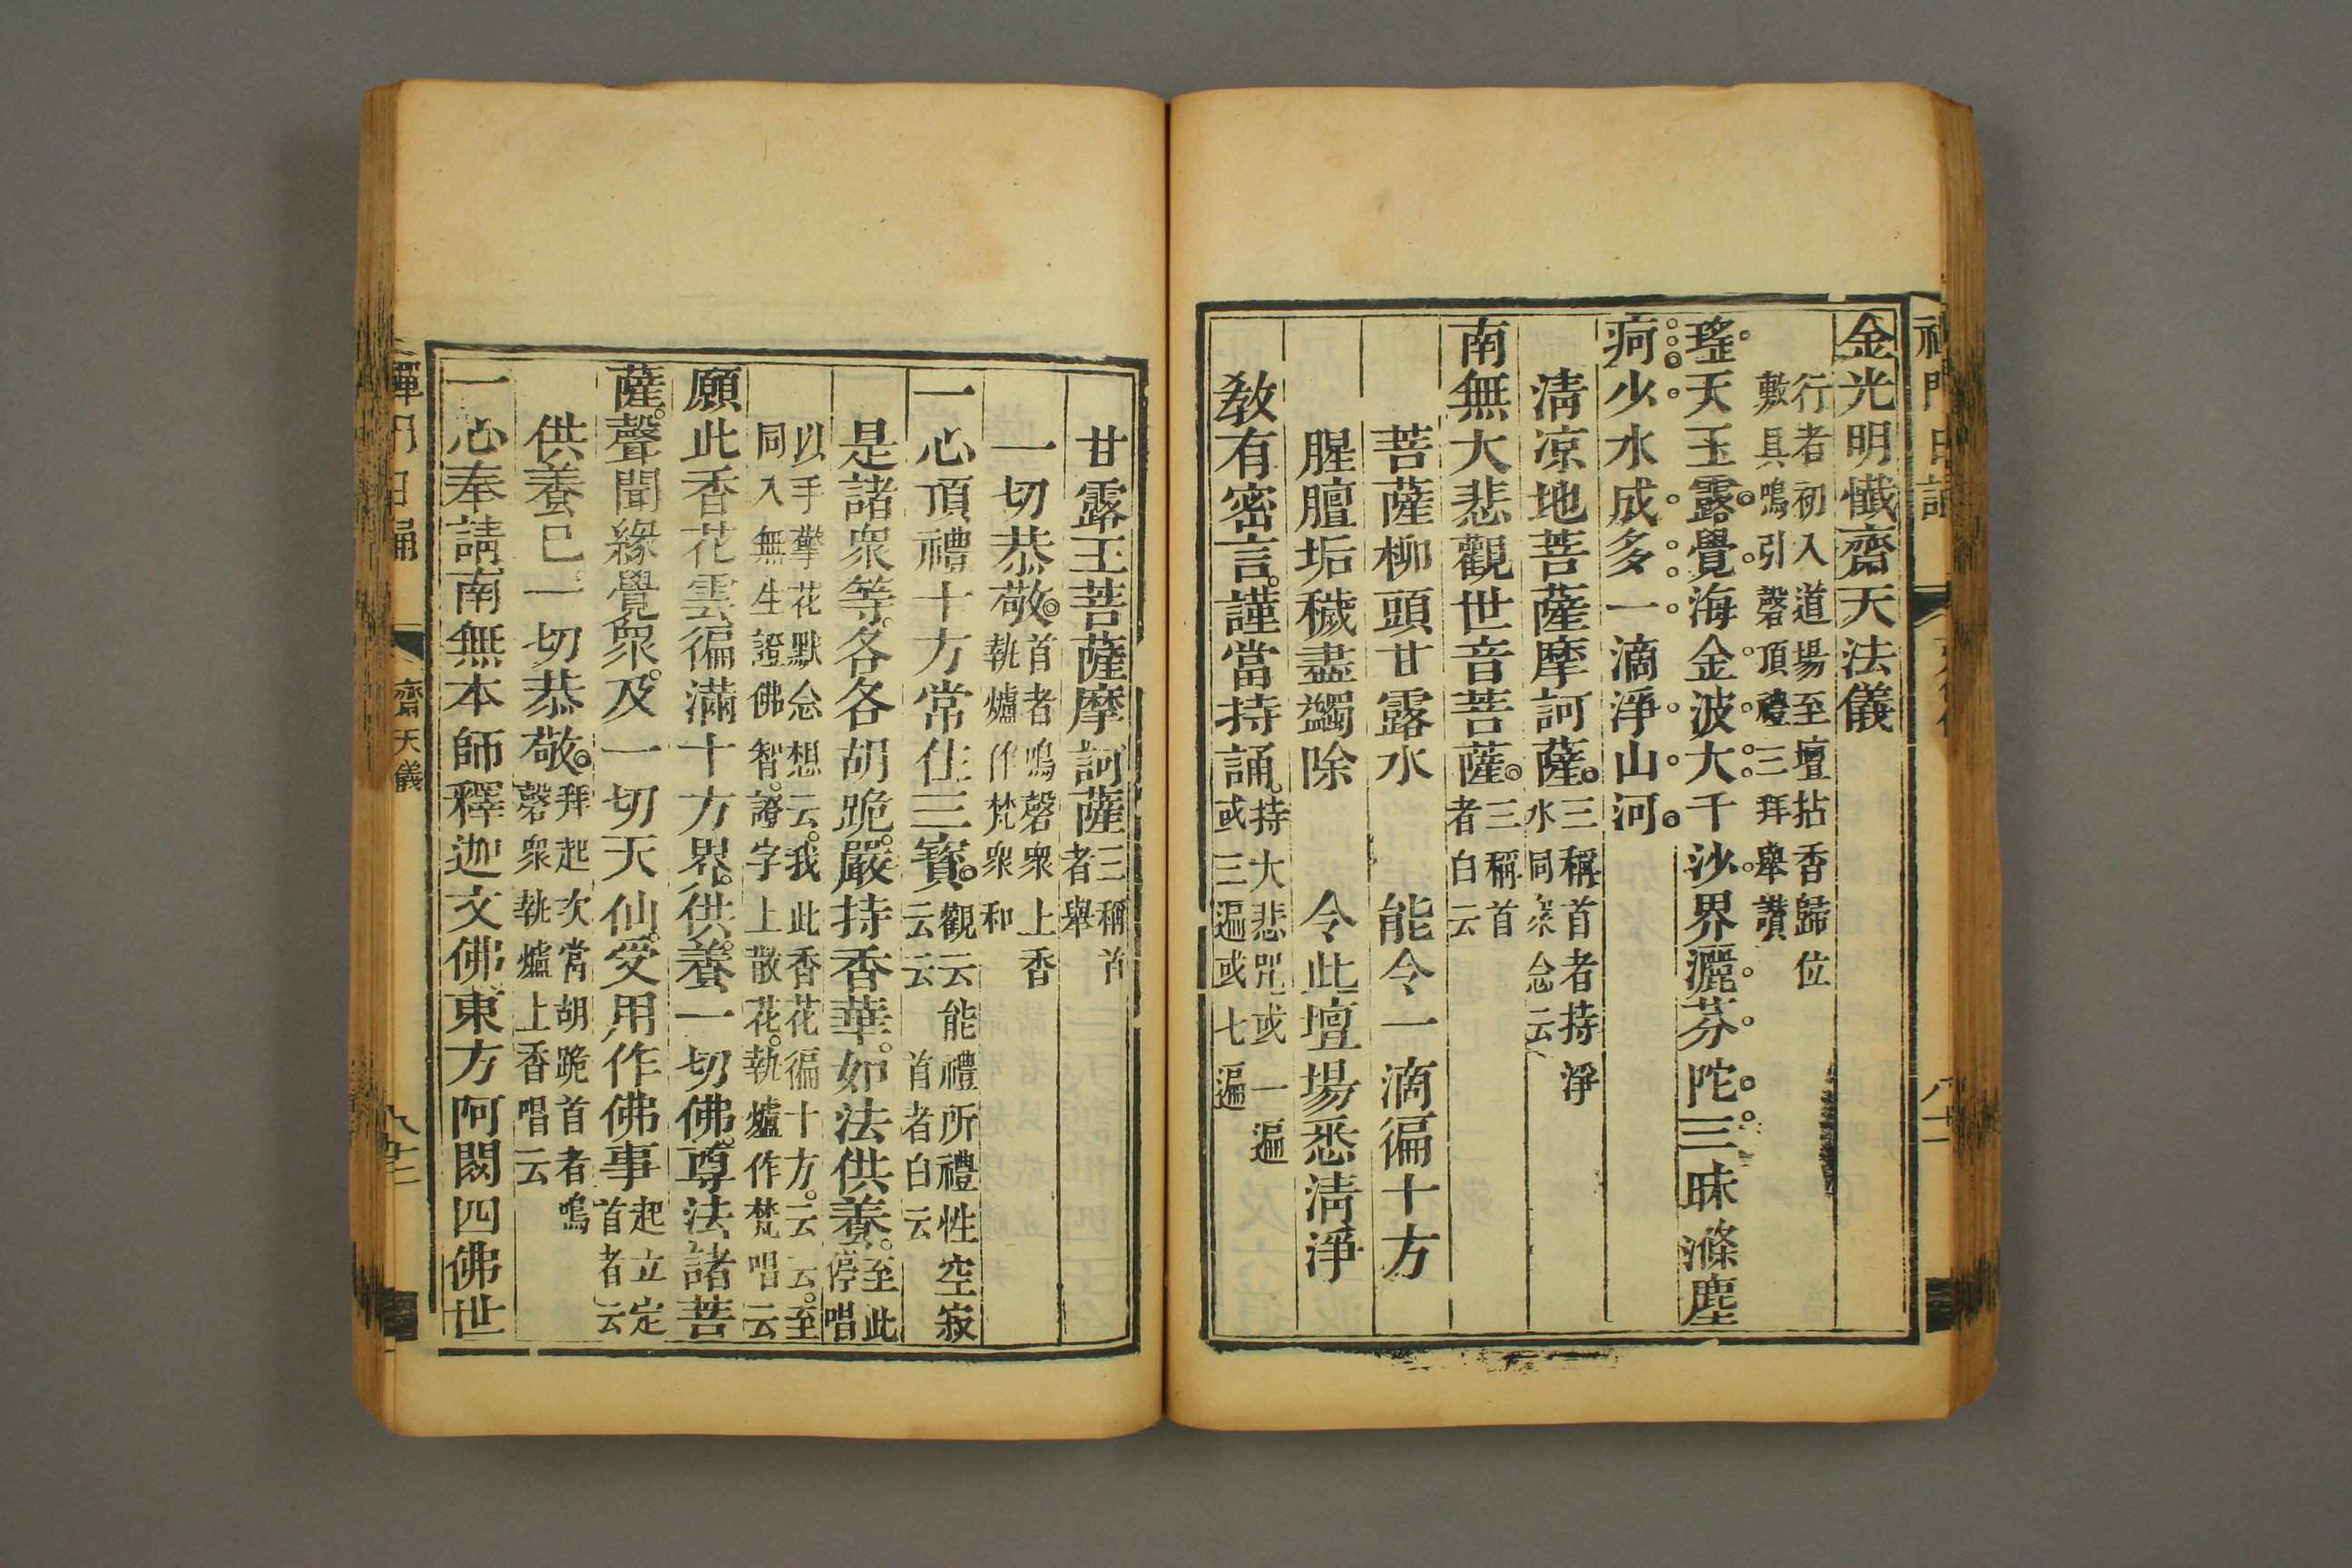 金光明懴齋天法儀
行者初入道場至壇拈香歸位
敷具鳴引磬頂禮三拜舉讚
瑤天玉露覺海金波大千沙界灑芬陀三昧滌塵
疴少水成多一滴淨山河
清凉地菩薩摩訶薩三稱首者持淨
水同衆念云
南無大悲觀世音菩薩三稱首
者白云
菩薩柳頭甘露水　能令一滴徧十方
腥膻垢穢盡蠲除　令此壇場悉清淨
敎有密言謹當持誦持大悲咒或一遍
或三遍或七遍
甘露王菩薩摩訶薩三稱首
者舉
一切恭敬首者鳴磬衆上香
執爐作梵衆和
一心頂禮十方常住三寳觀云能禮所禮性空寂
云云　首者白云
是諸衆等各各胡跪嚴持香華如法供養至此
停唱
以手擎花默念想云我此香花徧十方云云至
同入無生證佛智證字上散花執爐作梵唱云
願此香花雲徧滿十方界供養一切佛尊法諸菩
薩聲聞緣覺衆及一切天仙受用作佛事起立定
首者云
供養巳一切恭敬拜起次當胡跪首者鳴
磬衆執爐上香唱云
一心奉請南無本師釋迦文佛東方阿閦四佛世
齋天儀